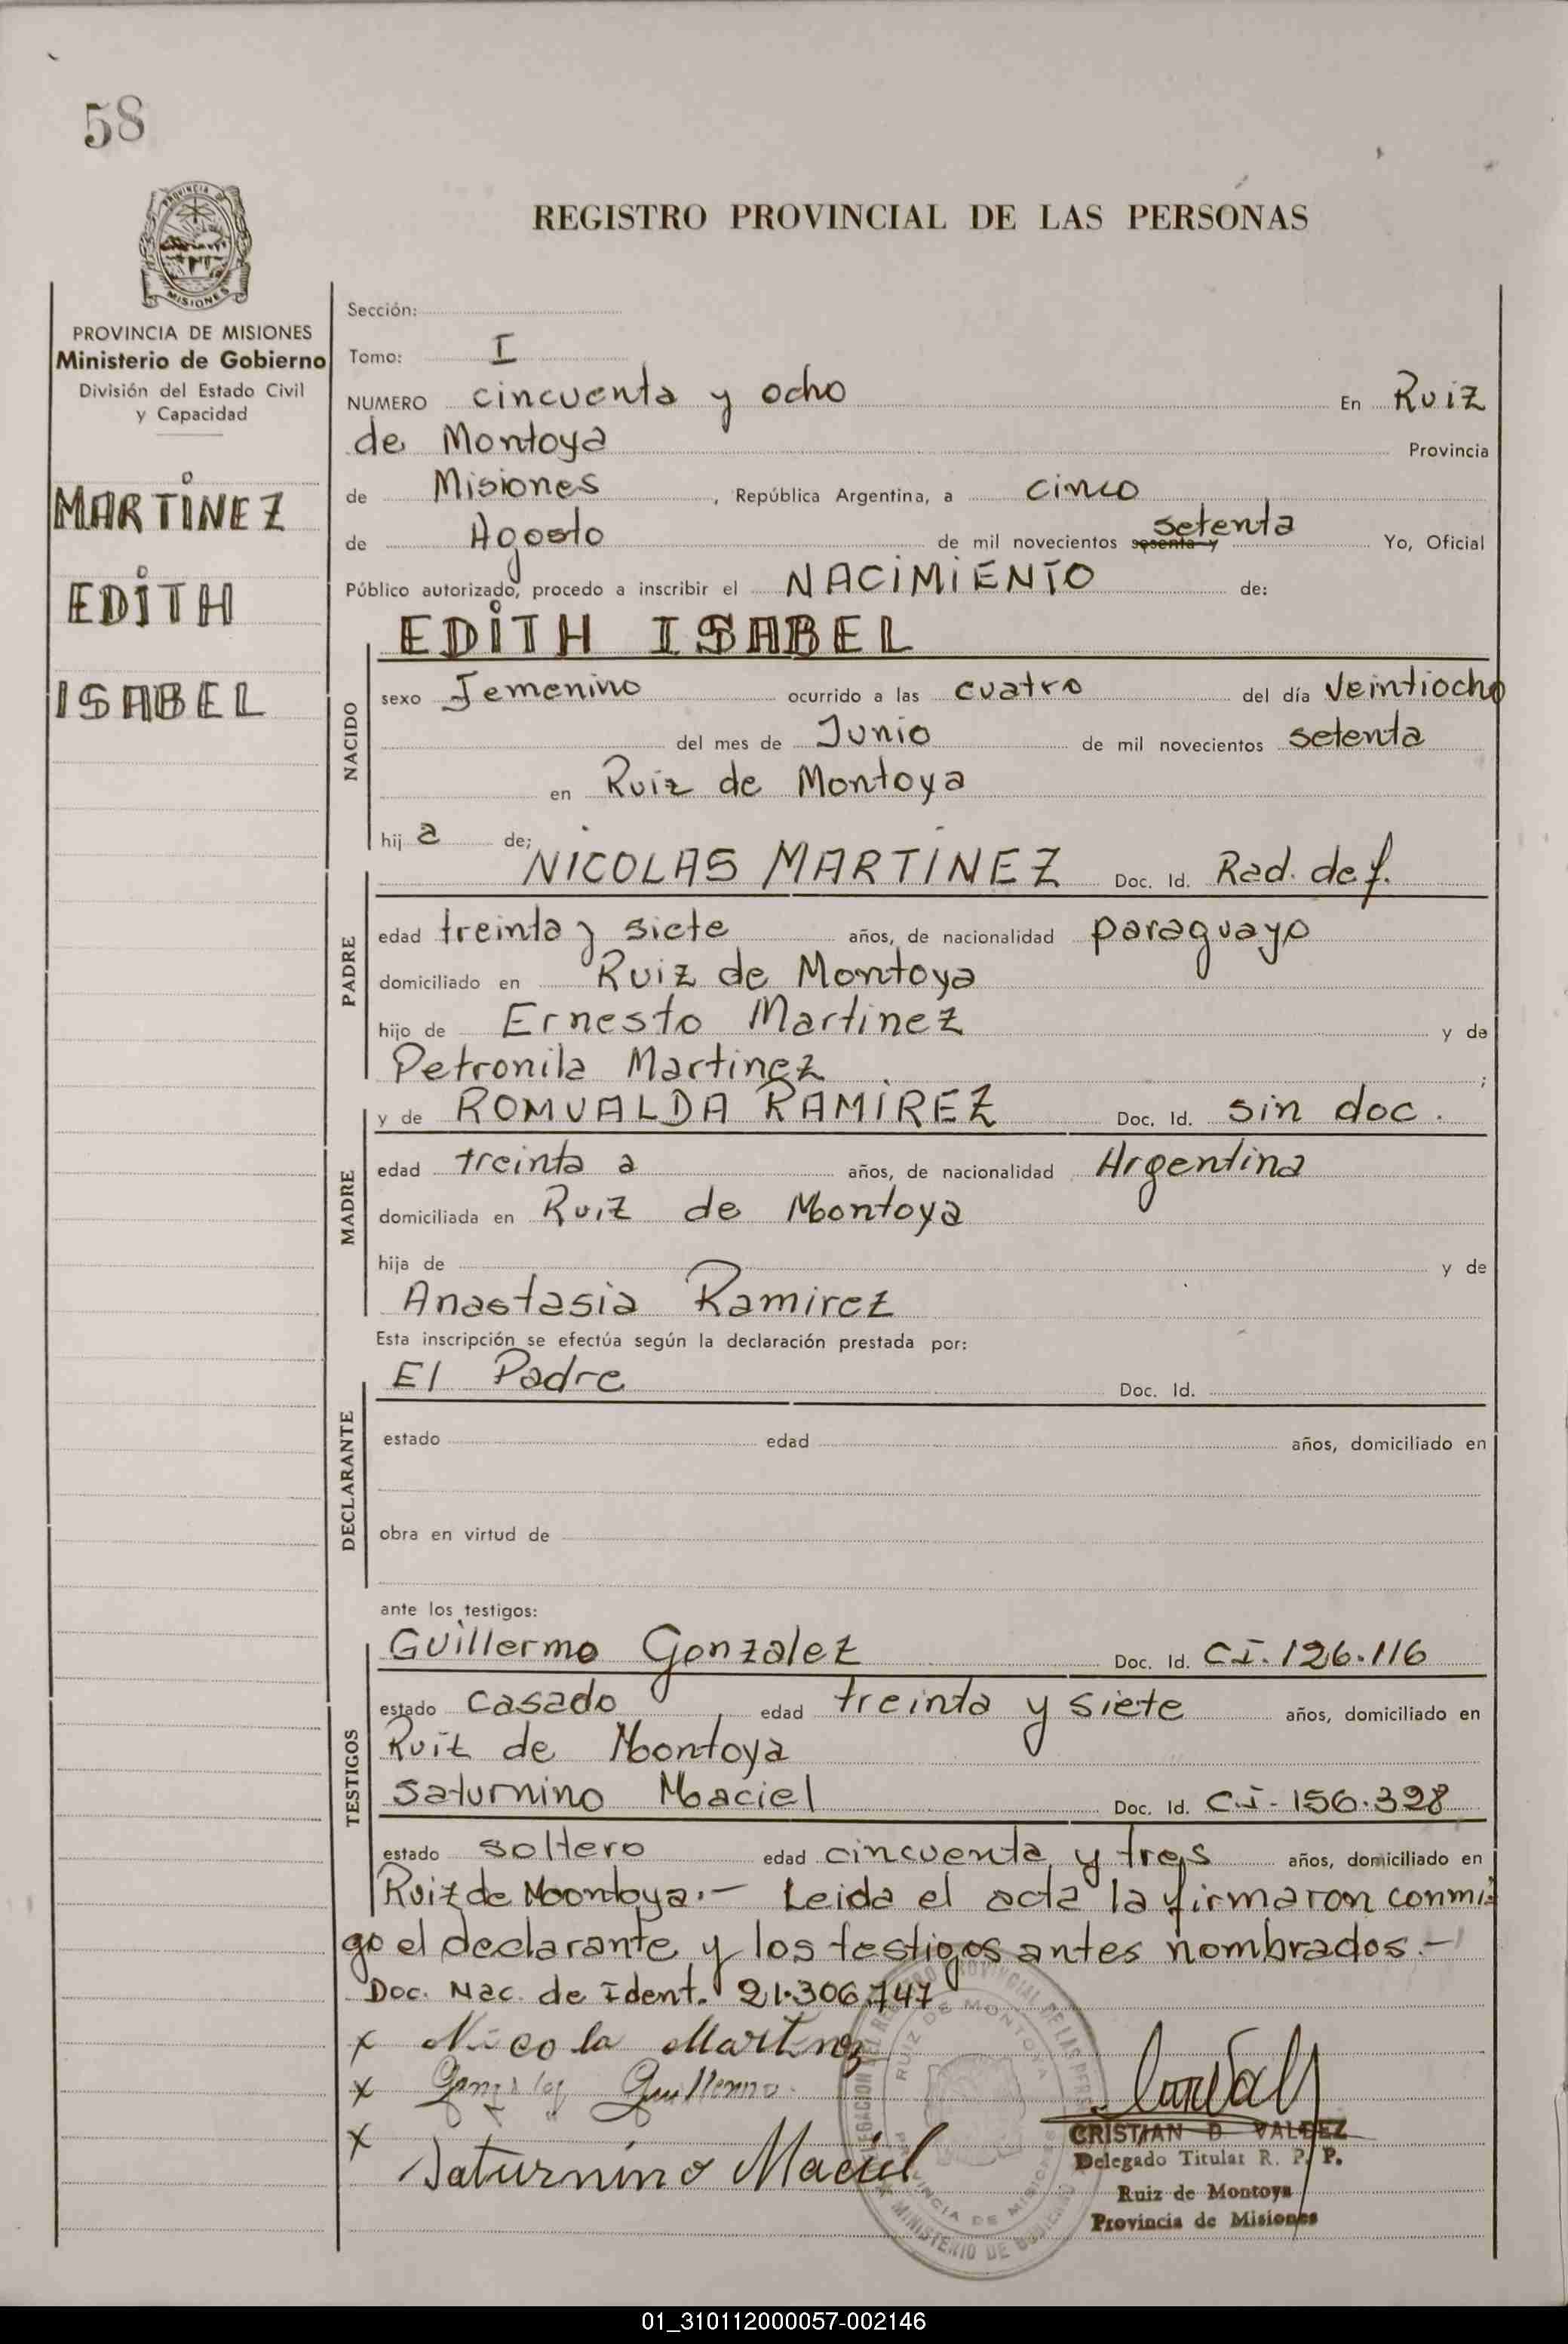 58
PROVINCIA DE
MISIONES
PROVINCIA DE MISIONES
Ministerio de Gobierno
División del Estado Civil
y Capacidad
MARTÍNEZ
EDITH
ISABEL
REGISTRO PROVINCIAL DE LAS PERSONAS
Sección:
Tomo: I
NUMERO cincuenta y ocho En Ruiz
de Montoya Provincia
de Misiones, República Argentina, a cinco
de Agosto de mil novecientos sesenta y setenta Yo, Oficial
Público autorizado, procedo a inscribir el NACIMIENTO de:
EDITH ISABEL
NACIDO
sexo Femenino ocurrido a las cuatro del día veintiocho
del mes de Junio de mil novecientos setenta
en Ruiz de Montoya
hij a de;
PADRE
NICOLAS MARTINEZ Doc. Id. Rad. def.
edad treinta y siete años, de nacionalidad paraguayo
domiciliado en Ruiz de Montoya
hijo de Ernesto Martinez y de
Petronila Martinez ;
MADRE
y de ROMUALDA RAMIREZ Doc. Id. sin doc.
edad treinta a años, de nacionalidad Argentina
domiciliada en Ruiz de Montoya
hija de y de
Anastasia Ramirez
Esta inscripción se efectúa según la declaración prestada por:
DECLARANTE
El Padre Doc. Id.
estado edad años, domiciliado en
obra en virtud de
ante los testigos:
TESTIGOS
Guillermo Gonzalez Doc. Id. C.I. 126.116
estado casado edad treinta y siete años, domiciliado en
Ruiz de Montoya
Saturnino Maciel Doc. Id. C.I. 156.398
estado soltero edad cincuenta y tres años, domiciliado en
Ruiz de Moontoya.- Leida el acta la firmaron conmi-
go el declarante y los testigos antes nombrados.-
Doc. Nac. de Ident. 21.306.747
x Nicola Martinez
x Gonzalez Guillermo
x Saturnino Maciel
DELEGACION DEL REGISTRO PROVINCIAL DE LAS PERSONAS
RUIZ DE MONTOYA
PROVINCIA DE MISIONES
MINISTERIO DE GOBIERNO
CRISTIAN D. VALDEZ
Delegado Titular R. P. P.
Ruiz de Montoya
Provincia de Misiones
01_310112000057-002146